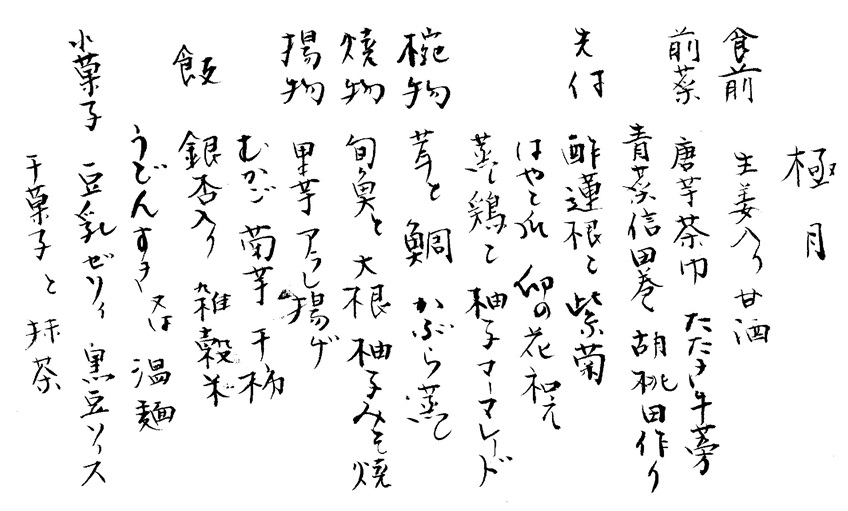 極月
食前 生姜入り甘酒
前菜 唐芋茶巾 たたき牛蒡
青菜信田巻 胡桃田作り
先付 酢蓮根と紫菊
はやと瓜 卯の花和え
蒸し鶏と柚子マーマレード
椀物 茸と鯛 かぶら蒸し
焼物 旬魚と大根 柚子みそ焼
揚物 里芋アラレ揚げ
むかご 菊芋 干柿
飯 銀杏入り 雑穀米
うどんすき 又は 温麺
小菓子 豆乳ゼリィ 黒豆ソース
干菓子と抹茶